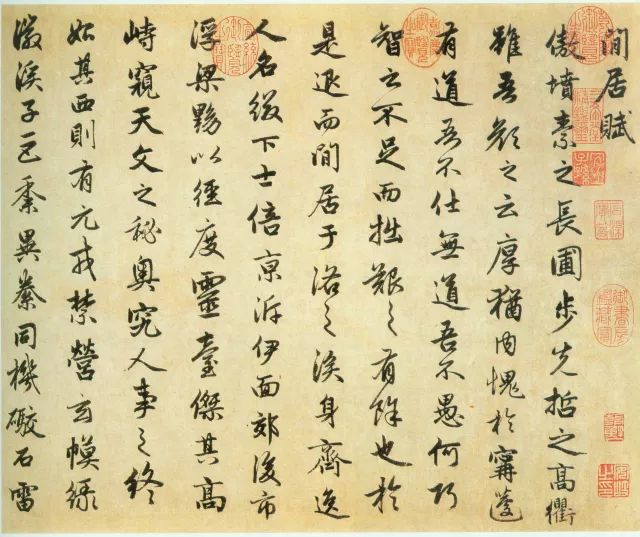 間居賦
傲墳素之長圃步先哲之高衢
雖吾顏之云厚猶内愧於甯蘧
有道吾不仕無道吾不愚何巧
智之不足而拙艱之有餘也於
是退而間居于洛之涘身齊逸
人名綴下士倍京泝伊面郊後市
浮梁黝以徑度靈臺傑其高
峙窺天文之秘奧究人事之終
始其西則有元戎禁營玄幙綠
徽溪子巨黍異絭同機礮石雷